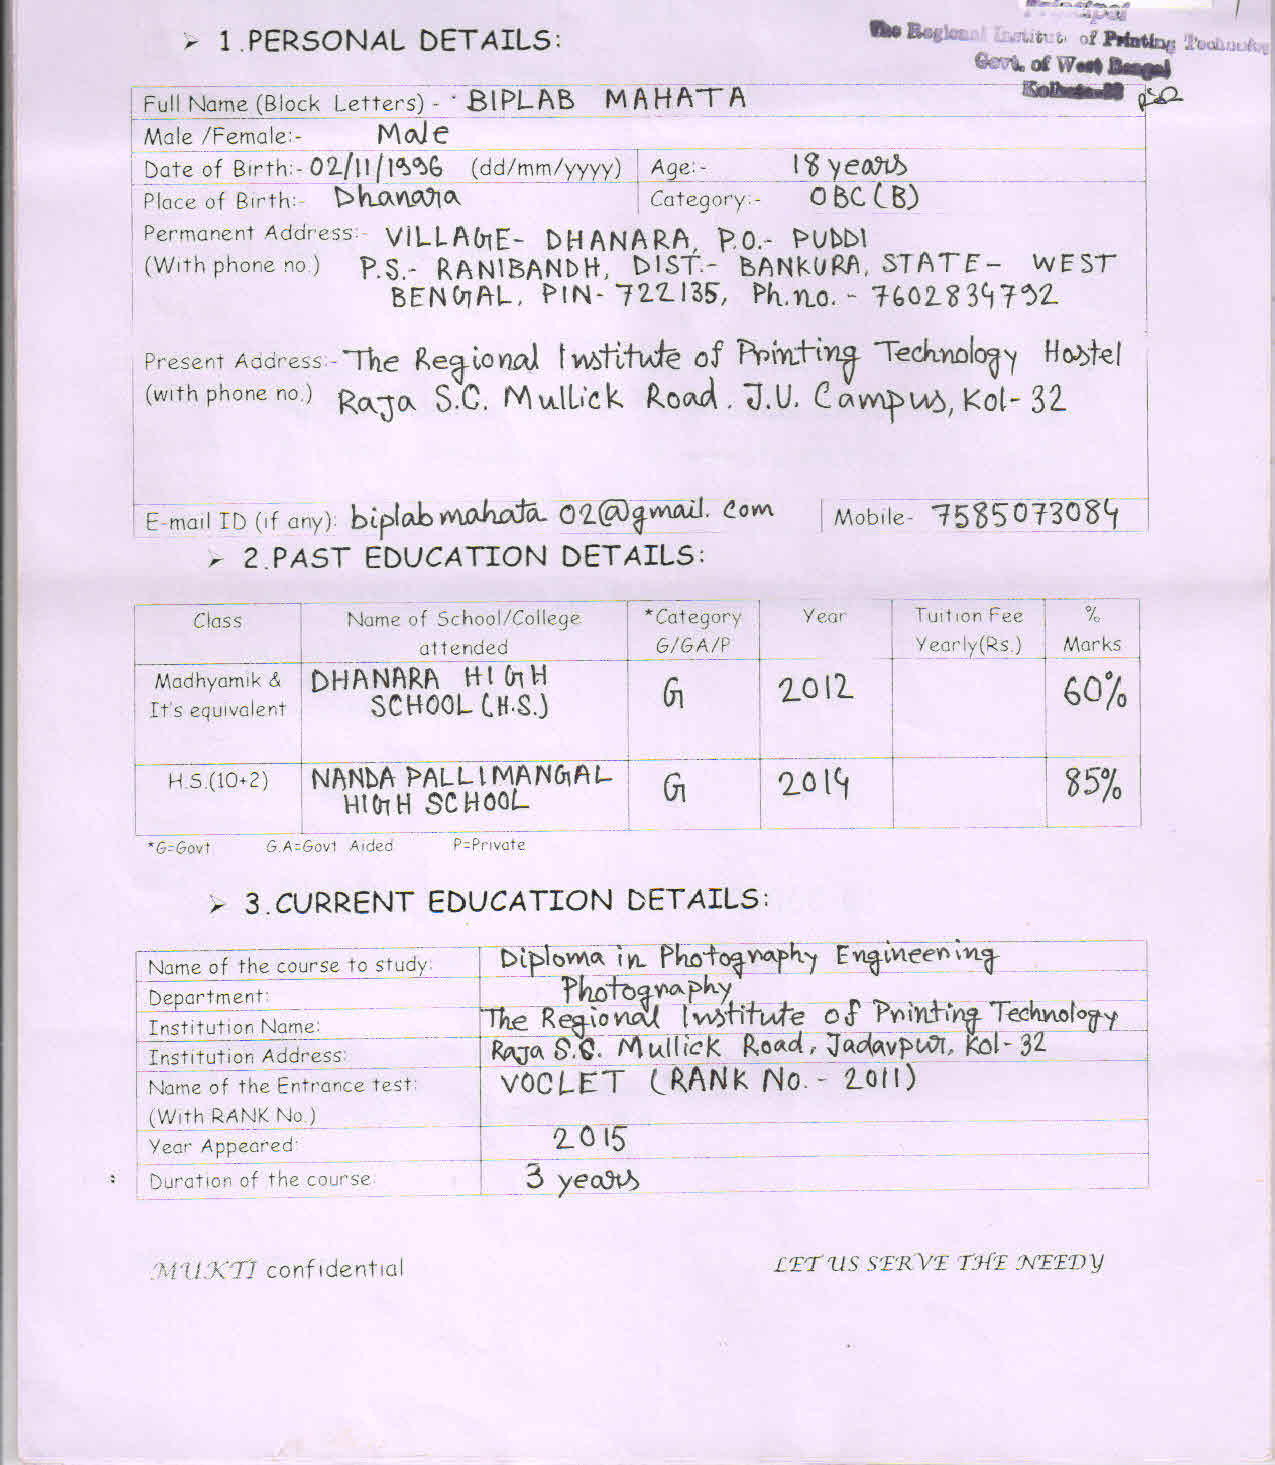 Principal
The Regional Institute of Printing Technology
Govt. of West Bengal
Kolkata-32
➢ 1.PERSONAL DETAILS:
Full Name (Block Letters) - BIPLAB MAHATA
Male /Female:- Male
Date of Birth:- 02/11/1996 (dd/mm/yyyy) Age:- 18 years
Place of Birth:- Dhanara Category:- OBC (B)
Permanent Address:- VILLAGE- DHANARA, P.O.- PUDDI
(With phone no.) P.S.- RANIBANDH, DIST.- BANKURA, STATE- WEST
BENGAL, PIN- 722135, Ph.no. - 7602834792
Present Address:- The Regional Institute of Printing Technology Hostel
(with phone no.) Raja S.C. Mullick Road. J.U. Campus, Kol- 32
E-mail ID (if any): biplabmahata02@gmail.com Mobile- 7585073084
➢ 2.PAST EDUCATION DETAILS:
Class Name of School/College *Category Year Tuition Fee %
attended G/GA/P Yearly(Rs.) Marks
Madhyamik & DHANARA HIGH G 2012 60%
It's equivalent SCHOOL (H.S.)
H.S.(10+2) NANDA PALLIMANGAL G 2014 85%
HIGH SCHOOL
*G=Govt G.A=Govt Aided P=Private
➢ 3.CURRENT EDUCATION DETAILS:
Name of the course to study: Diploma in Photography Engineering
Department: Photography
Institution Name: The Regional Institute of Printing Technology
Institution Address: Raja S.C. Mullick Road, Jadavpur, Kol- 32
Name of the Entrance test: VOCLET (RANK No. - 2011)
(With RANK No.)
Year Appeared: 2015
Duration of the course: 3 years
MUKTI confidential LET US SERVE THE NEEDY